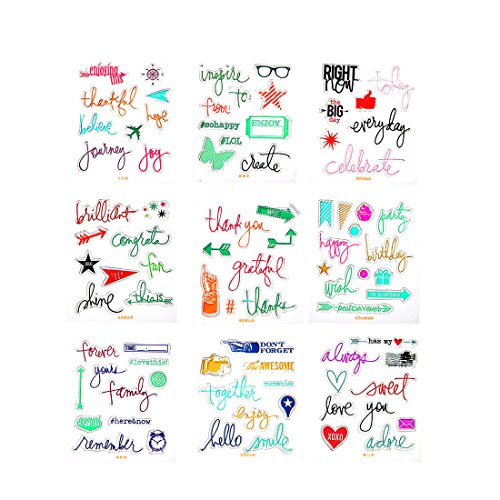 enjoying
this
thankful
hope
believe
journey
joy
inspire
to:
from:
#sohappy
ENJOY
#LOL
create
RIGHT
now
today
the
BIG
day
everyday
celebrate
brilliant
congrats
fun
shine
this is
thank you
grateful
#
thanks
party
happy
birthday
wish
best DAY ever
forever
#lovethis
yours
family
#here&now
remember
DON'T
FORGET
the AWESOME
together
enjoy
hello
smile
has my
always
sweet
love
you
XOXO
adore